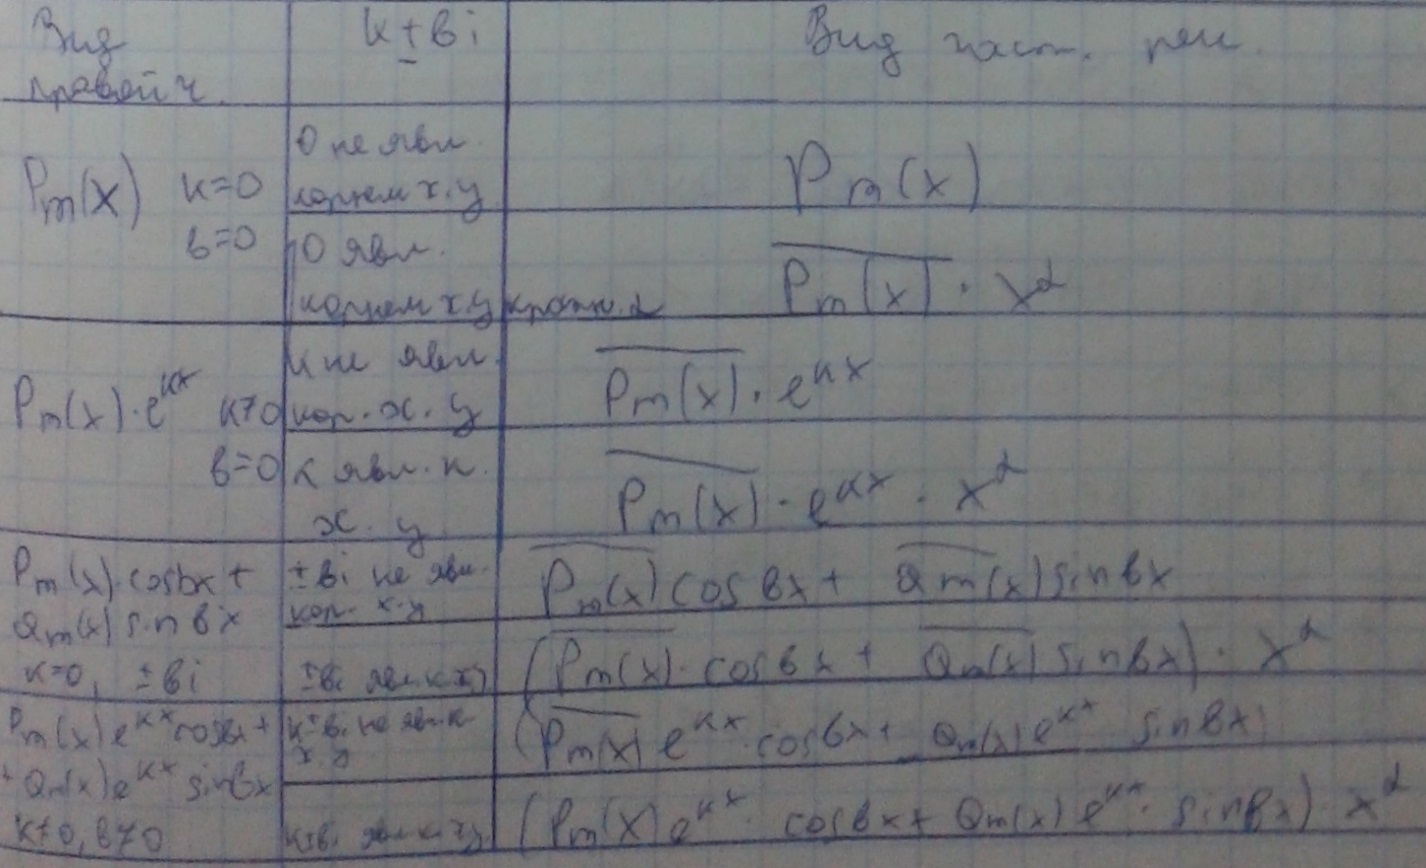 Вид
правой ч.
k ± bi
Вид част. реш.
Pm(x) k=0
b=0
0 не явл.
корнем х.у
P̅m̅(̅x̅)̅
0 явл.
корнем х.у кратн. α
P̅m̅(̅x̅)̅ · x^α
Pm(x)·e^kx k≠0
b=0
k не явл.
кор. х. у
P̅m̅(̅x̅)̅ · e^kx
k явл. к.
х. у
P̅m̅(̅x̅)̅ · e^kx · x^α
Pm(x)·cosbx +
Qm(x) sinbx
k=0, ±bi
±bi не явл.
кор. х.у
P̅m̅(̅x̅)̅ cosbx + Q̅m̅(̅x̅)̅ sinbx
±bi явл. к х у
(P̅m̅(̅x̅)̅ · cosbx + Q̅m̅(̅x̅)̅ sinbx) · x^α
Pm(x)e^kx cosbx +
+ Qm(x)e^kx sinbx
k≠0, b≠0
k±bi не явл. к
х. у
(P̅m̅(̅x̅)̅ e^kx · cosbx + Qm(x)e^kx sinbx)
k±bi явл. к. х у
(Pm(x)e^kx · cosbx + Qm(x)e^kx · sinbx) · x^α